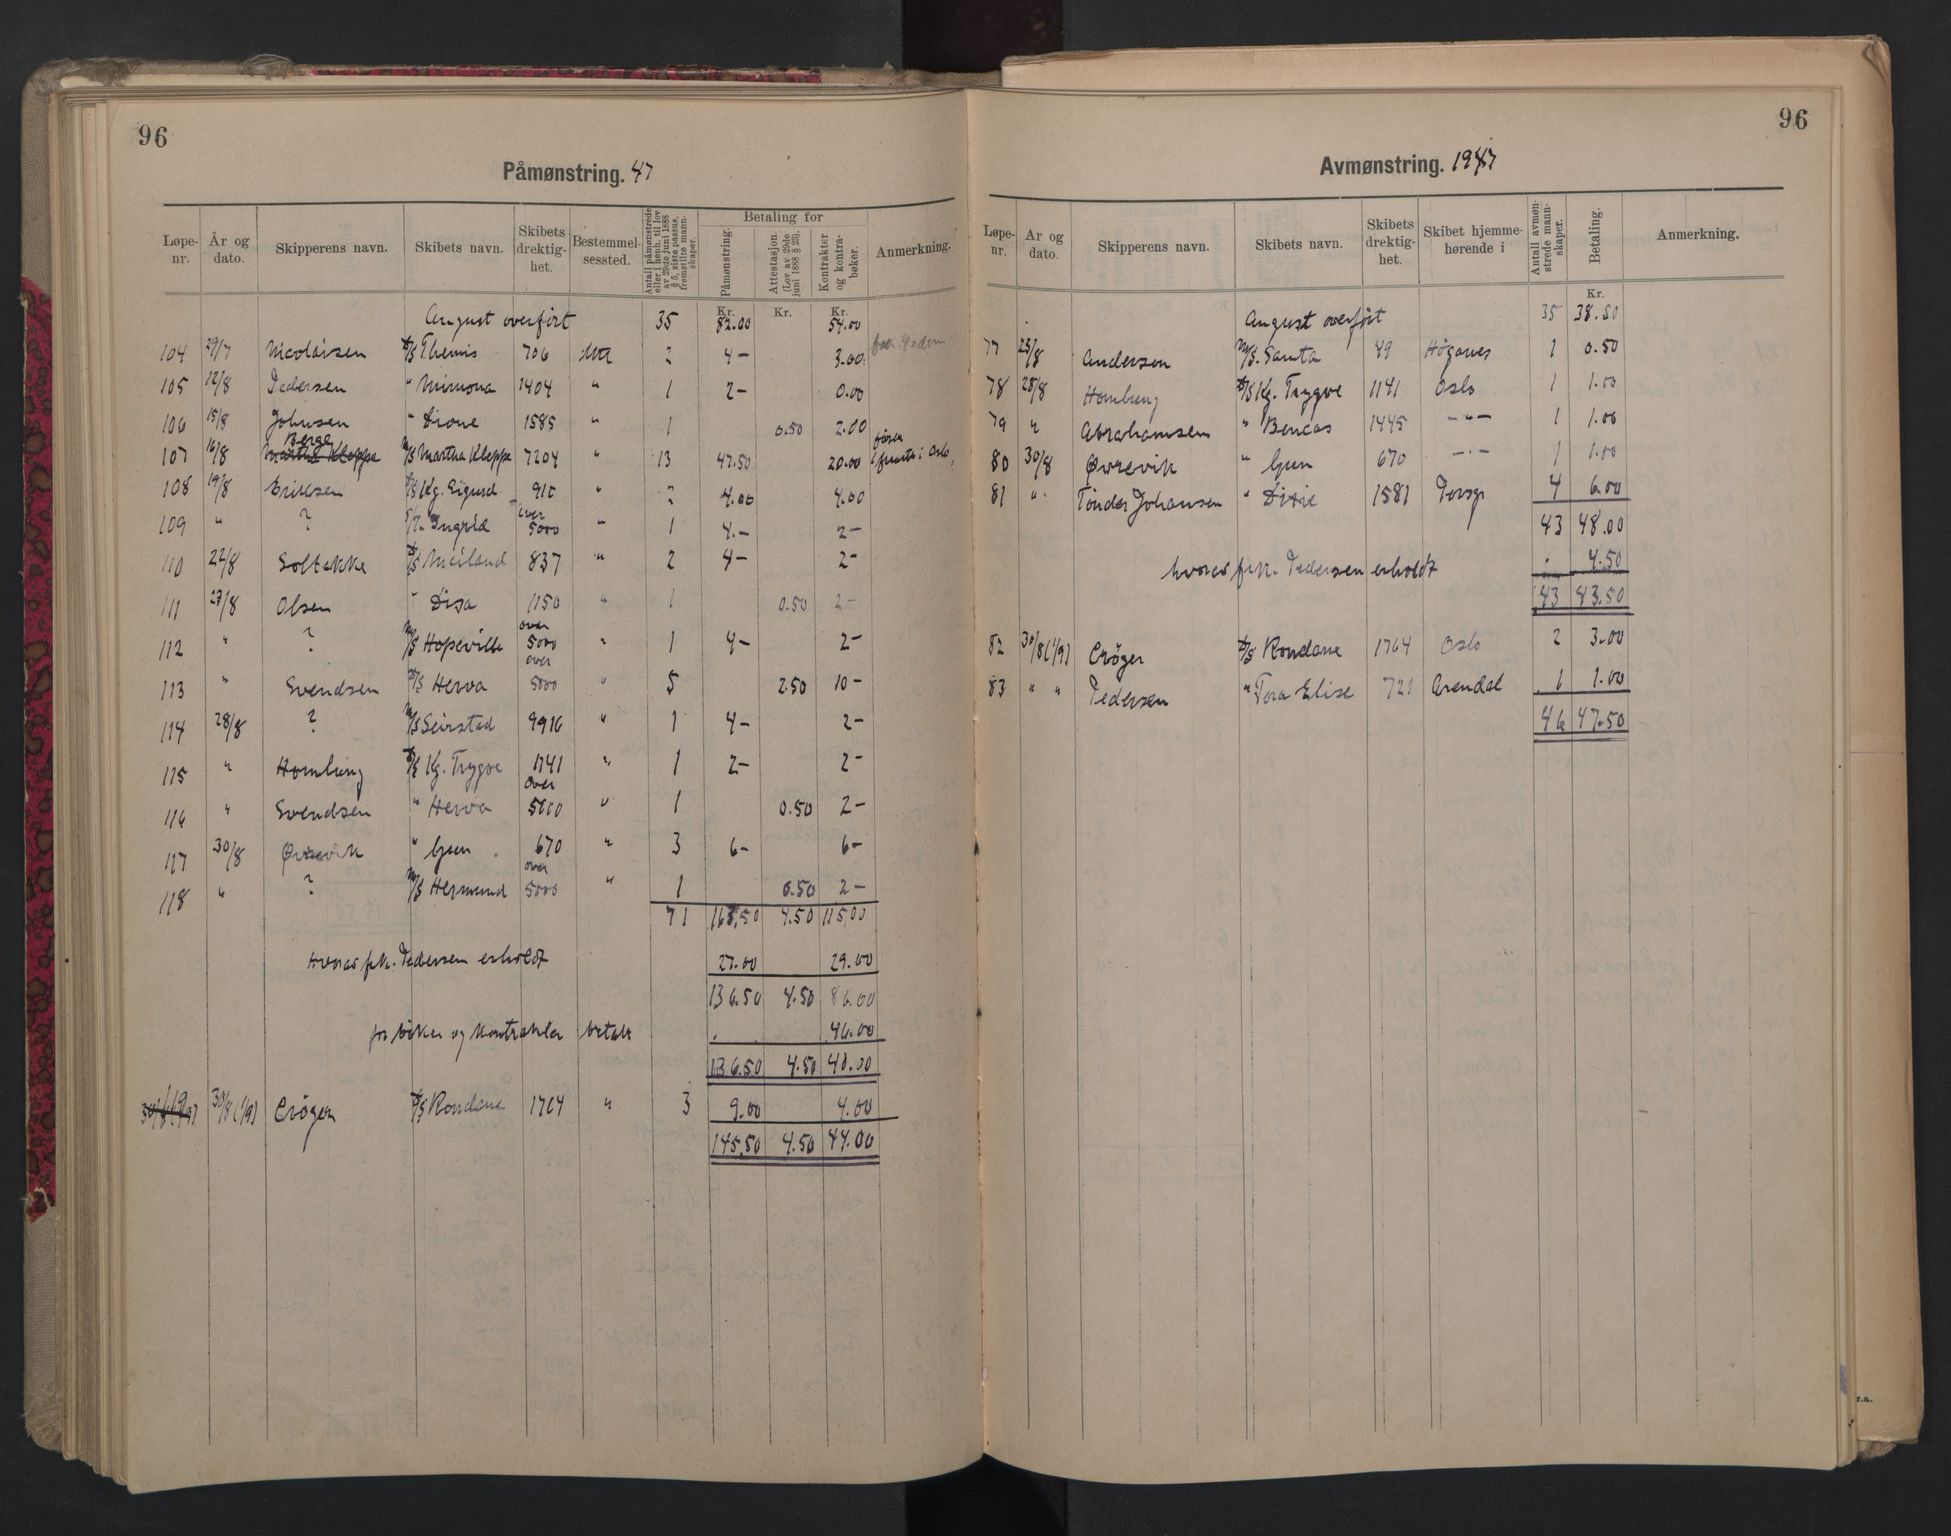 96
Påmønstring. 47
Løpe-nr. | År og dato. | Skipperens navn. | Skibets navn. | Skibets drektig-het. | Bestemmel-sessted. | Antall påmønstrede eller i henh. til lov av 29de juni 1888 § 5, siste passus, fremstilte mann-skaper. | Betaling for | Påmønstring. | Attestasjon. (Lov av 29de juni 1888 § 23). | Kontrakter og kontra-bøker. | Anmerkning.
Kr. Kr. Kr.
August overført 35 82.00 54.00
104 29/7 Nicolaisen D/S Themis 706 2 4- 3.00
105 12/8 Pedersen " Mimona 1404 " 1 2- 0.00
106 15/8 Johnsen " Dione 1585 " 1 0.50 2.00
Berge
107 16/8 Martha Kleppe M/S Martha Kleppe 7204 " 13 47.50 20.00 i Oslo
108 19/8 Eriksen D/S Kg. Sigurd 910 " 2 4.00 4.00
over
109 " ? Ingrid 5000 " 1 4.- 2-
110 22/8 Soltekke D/S 837 " 2 4- 2-
111 27/8 Olsen " Disa 1150 " 1 0.50 2-
over
112 " ? M/S Hopeville 5000 " 1 4- 2-
over
113 " Svendsen D/S Herva 5000 " 5 2.50 10-
114 28/8 ? M/S Seirstad 9916 " 1 4- 2-
115 " Homburg D/S Kg. Trygve 1141 " 1 2- 2-
over
116 " Svendsen " Herva 5000 " 1 0.50 2-
117 30/8 Øvrevik " Gun 670 " 3 6- 6-
over
118 " ? M/S Hermund 5000 " 1 0.50 2-
71 163,50 4.50 115,00
hvorav frk. Pedersen erholdt 27.00 29.00
136.50 4.50 86.00
for bøker og kontrakter betalt 46.00
136.50 4.50 40.00
30/8(1/9) Crøger D/S Rondane 1764 " 3 9.00 4.00
145,50 4.50 44.00
96
Avmønstring. 1947
Løpe-nr. | År og dato. | Skipperens navn. | Skibets navn. | Skibets drektig-het. | Skibet hjemme-hørende i | Antall avmøn-strede mann-skaper. | Betaling. | Anmerkning.
Kr.
August overført 35 38.50
77 23/8 Anderson M/S. Samta 49 Höganes 1 0.50
78 28/8 Homburg D/S Kg. Trygve 1141 Oslo 1 1.00
79 " Abrahamsen " Bencas 1445 -"- 1 1.00
80 30/8 Øvrevik " Gun 670 -"- 1 1.00
81 " Tönder Johansen " Dixie 1581 Porsgr 4 6.00
43 48.00
hvorav frk. Pedersen erholdt 4.50
43 43.50
82 30/8(1/9) Crøger D/S Rondane 1764 Oslo 2 3.00
83 " " Pedersen " Tora Elise 721 Arendal 1 1.00
46 47.50
r.a.